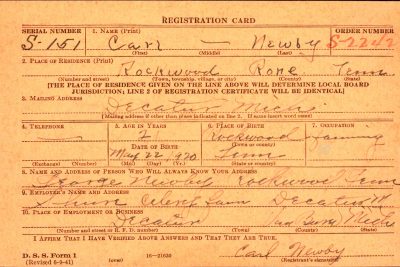 REGISTRATION CARD
SERIAL NUMBER 1. NAME (Print) ORDER NUMBER
S-151 Carl — Newby S-2242
(First) (Middle) (Last)
2. PLACE OF RESIDENCE (Print)
Rockwood Rone Tenn
(Number and street) (Town, township, village, or city) (County) (State)
[THE PLACE OF RESIDENCE GIVEN ON THE LINE ABOVE WILL DETERMINE LOCAL BOARD
JURISDICTION; LINE 2 OF REGISTRATION CERTIFICATE WILL BE IDENTICAL]
3. MAILING ADDRESS
Decatur Mich
[Mailing address if other than place indicated on line 2. If same insert word same]
4. TELEPHONE 5. AGE IN YEARS 6. PLACE OF BIRTH 7. OCCUPATION
— Rockwood
DATE OF BIRTH (Town or county)
May 22 1920 Tenn
(Exchange) (Number) (Mo.) (Day) (Yr.) (State or country)
8. NAME AND ADDRESS OF PERSON WHO WILL ALWAYS KNOW YOUR ADDRESS
George Newby Rockwood Tenn
9. EMPLOYER'S NAME AND ADDRESS
Decatur M
10. PLACE OF EMPLOYMENT OR BUSINESS
Decatur Van Buren Mich
(Number and street or R. F. D. number) (Town) (County) (State)
I AFFIRM THAT I HAVE VERIFIED ABOVE ANSWERS AND THAT THEY ARE TRUE.
Carl Newby
D. S. S. Form 1 16—21630 (Registrant's signature)
(Revised 6-9-41)